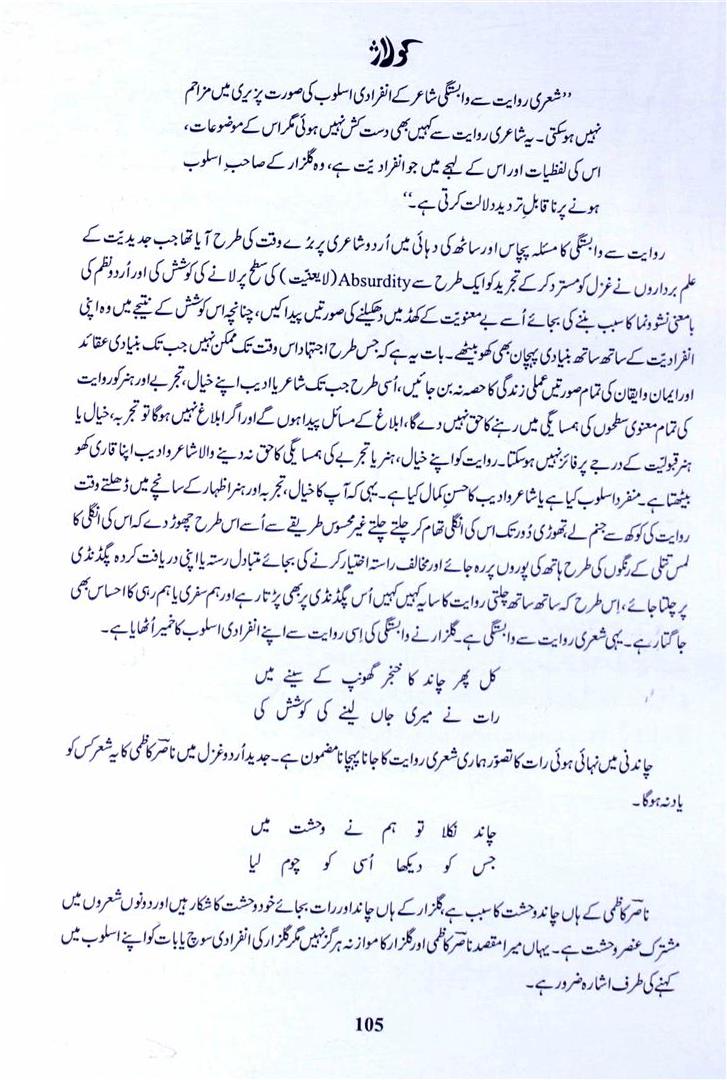 کولاژ
’’شعری روایت سے وابستگی شاعر کے انفرادی اسلوب کی صورت پزیری میں مزاحم
نہیں ہو سکتی۔ یہ شاعری روایت سے کہیں بھی دست کش نہیں ہوئی مگر اس کے موضوعات،
اس کی لفظیات اور اس کے لہجے میں جو انفرادیّت ہے، وہ گلزار کے صاحبِ اسلوب
ہونے پر ناقابلِ تردید دلالت کرتی ہے۔‘‘
روایت سے وابستگی کا مسئلہ پچاس اور ساٹھ کی دہائی میں اُردو شاعری پر بڑے وقت کی طرح آیا تھا جب جدیدیّت کے
علم برداروں نے غزل کو مسترد کر کے تجرید کو ایک طرح سے Absurdity (لایعنیّت) کی سطح پر لانے کی کوشش کی اور اُردو نظم کی
بامعنی نشوونما کا سبب بننے کی بجائے اُسے بے معنویّت کے کھڈ میں دھکیلنے کی صورتیں پیدا کیں، چنانچہ اس کوشش کے نتیجے میں وہ اپنی
انفرادیّت کے ساتھ ساتھ بنیادی پہچان بھی کھو بیٹھے۔ بات یہ ہے کہ جس طرح اجتہاد اس وقت تک ممکن نہیں جب تک بنیادی عقائد
اور ایمان وایقان کی تمام صورتیں عملی زندگی کا حصہ نہ بن جائیں، اُسی طرح جب تک شاعر یا ادیب اپنے خیال، تجربے اور ہنر کو روایت
کی تمام معنوی سطحوں کی ہمسایگی میں رہنے کا حق نہیں دے گا، ابلاغ کے مسائل پیدا ہوں گے اور اگر ابلاغ نہیں ہوگا تو تجربہ، خیال یا
ہنر قبولیّت کے درجے پر فائز نہیں ہو سکتا۔ روایت کو اپنے خیال، ہنر یا تجربے کی ہمسایگی کا حق نہ دینے والا شاعر و ادیب اپنا قاری کھو
بیٹھتا ہے۔ منفرد اسلوب کیا ہے یا شاعر و ادیب کا حسنِ کمال کیا ہے۔ یہی کہ آپ کا خیال، تجربہ اور ہنر اظہار کے سانچے میں ڈھلتے وقت
روایت کی کوکھ سے جنم لے، تھوڑی دُور تک اس کی انگلی تھام کر چلتے چلتے غیر محسوس طریقے سے اُسے اس طرح چھوڑ دے کہ اس کی انگلی کا
لمس تتلی کے رنگوں کی طرح ہاتھ کی پوروں پر رہ جائے اور مخالف راستہ اختیار کرنے کی بجائے متبادل رستہ یا اپنی دریافت کردہ پگڈنڈی
پر چلتا جائے، اِس طرح کہ ساتھ ساتھ چلتی روایت کا سایہ کہیں کہیں اُس پگڈنڈی پر بھی پڑتا رہے اور ہم سفری یا ہم رہی کا احساس بھی
جاگتا رہے۔ یہی شعری روایت سے وابستگی ہے۔ گلزار نے وابستگی کی اِسی روایت سے اپنے انفرادی اسلوب کا خمیر اُٹھایا ہے۔
کل پھر چاند کا خنجر گھونپ کے سینے میں
رات نے میری جاں لینے کی کوشش کی
چاندنی میں نہائی ہوئی رات کا تصوّر ہماری شعری روایت کا جانا پہچانا مضمون ہے۔ جدید اُردو غزل میں ناصرؔ کاظمی کا یہ شعر کس کو
یاد نہ ہوگا۔
چاند نکلا تو ہم نے وحشت میں
جس کو دیکھا اُسی کو چوم لیا
ناصرؔ کاظمی کے ہاں چاند وحشت کا سبب ہے، گلزار کے ہاں چاند اور رات بجائے خود وحشت کا شکار ہیں اور دونوں شعروں میں
مشترک عنصر وحشت ہے۔ یہاں میرا مقصد ناصرؔ کاظمی اور گلزار کا موازنہ ہرگز نہیں مگر گلزار کی انفرادی سوچ یا بات کو اپنے اسلوب میں
کہنے کی طرف اشارہ ضرور ہے۔
105